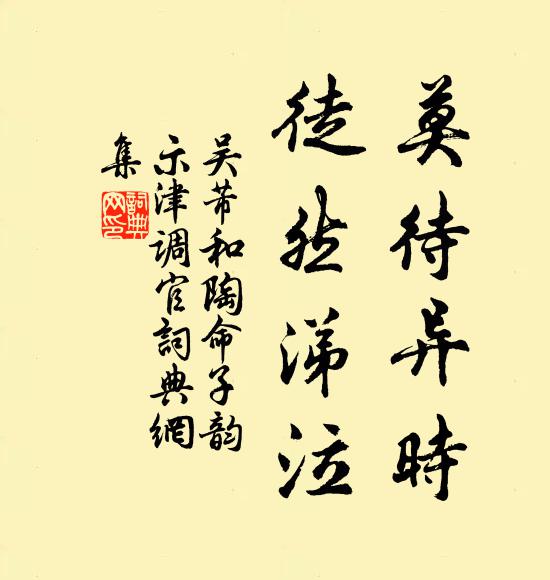 莫待异時
徒然涕泣
吴芾和陶命子韵
示津调官詞典網
集
詞典網印